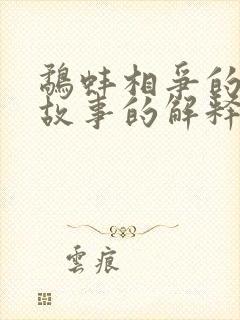 鷸蚌相爭的
故事的解释
雲痕